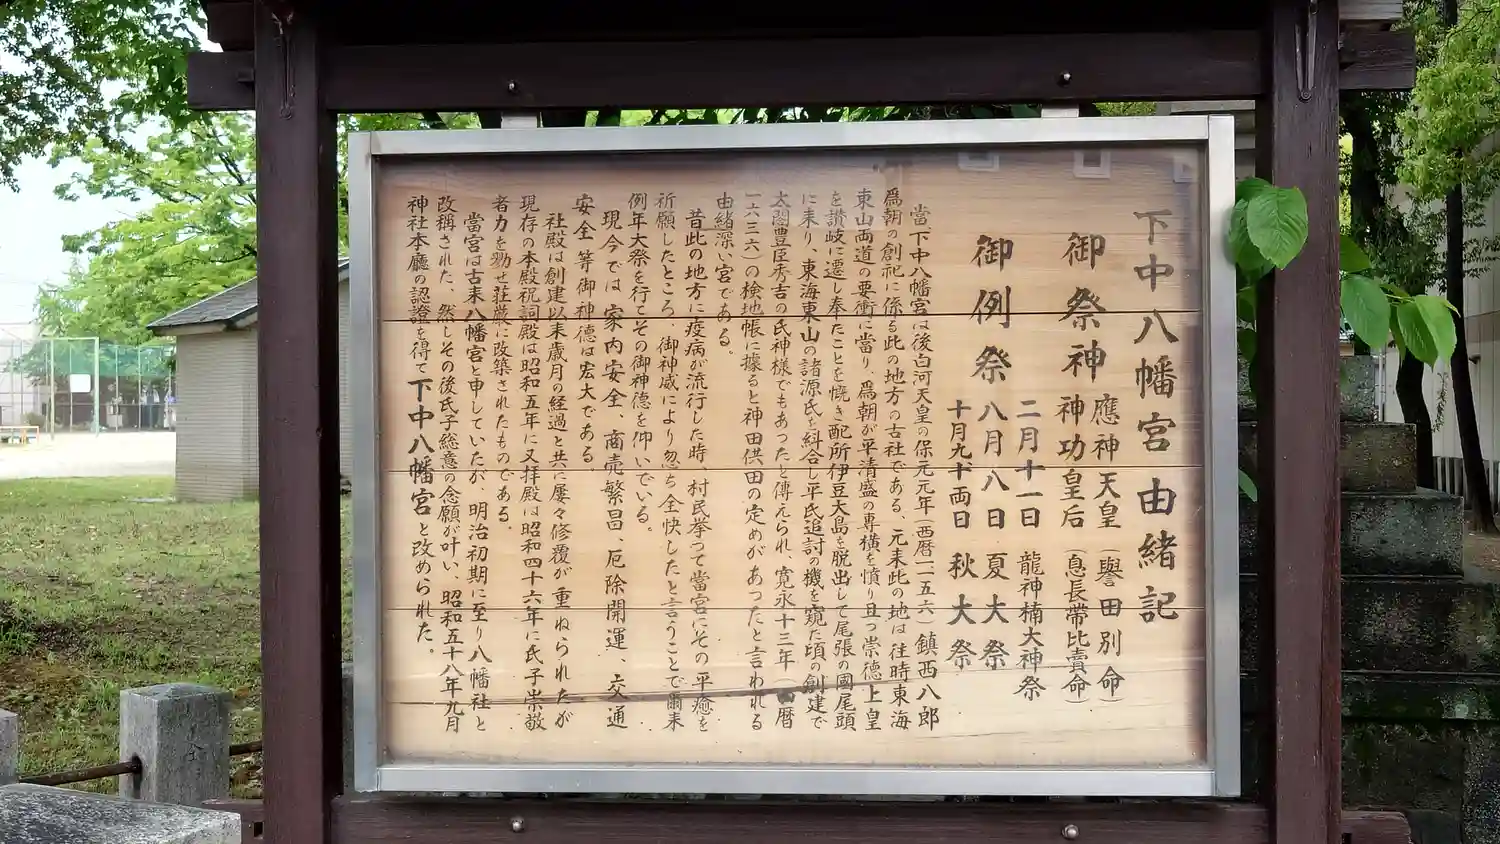 下中八幡宮由緒記
御祭神 應神天皇(譽田別命)
神功皇后(息長帯比賣命)
御例祭 二月十一日 龍神楠大神祭
八月八日 夏大祭
十月九十両日 秋大祭
當下中八幡宮は後白河天皇の保元元年(西暦一一五六)鎮西八郎
爲朝の創祀に係る此の地方の古社である、元来此の地は往時東海
東山両道の要衝に當り、爲朝が平清盛の専横を憤り且つ崇德上皇
を讃岐に遷し奉たことを慨き配所伊豆大島を脱出して尾張の國尾頭
に来り東海東山の諸源氏を糾合し平氏追討の機を窺た頃の創建で
太閤豊臣秀吉の氏神様でもあつたと傳えられ、寛永十三年(西暦
一六三六)の検地帳に據ると神田供田の定めがあつたと言われる
由緒深い宮である。
昔此の地方に疫病が流行した時、村民挙つて當宮にその平癒を
祈願したところ、御神威により忽ち全快したと言うことで爾来
例年大祭を行てその御神徳を仰いでいる。
現今では家内安全、商売繁昌、厄除開運、交通
安全等御神徳は宏大である。
社殿は創建以来歳月の経過と共に屡々修覆が重ねられたが
現存の本殿祝詞殿は昭和五年に又拝殿は昭和四十六年に氏子崇敬
者力を勠せ荘厳に改築されたものである。
當宮は古来八幡宮と申していたが、明治初期に至り八幡社と
改稱された、然しその後氏子総意の念願が叶い、昭和五十八年九月
神社本廳の認證を得て下中八幡宮と改められた。